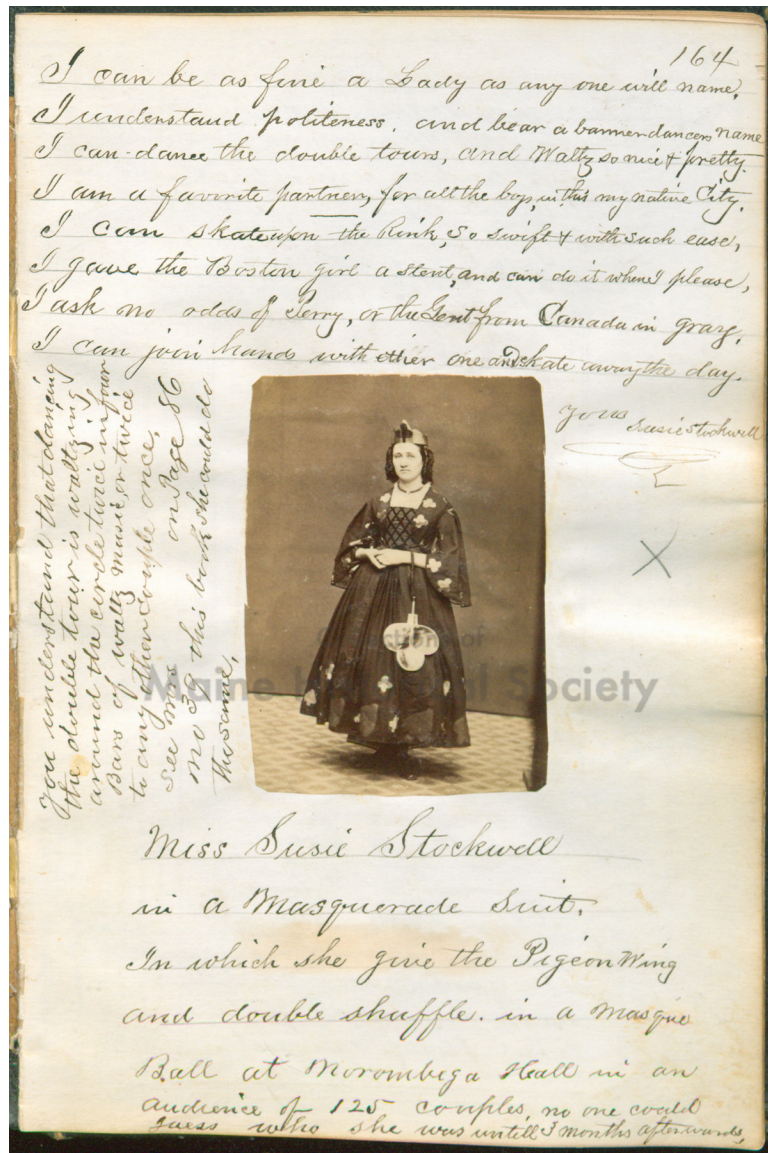 164
I can be as fine a Lady as any one will name,
I understand politeness, and bear a banner dancers name
I can dance the double tours, and Waltz so nice & pretty.
I am a favorite partner, for all the boys, in this my native City.
I can skate upon the Rink, so swift & with such ease,
I gave the Boston girl a stent, and can do it when I please,
I ask no odds of Perry, or the Gent from Canada in gray,
I can join hands with either one and skate away the day.
Yours Susie Stockwell
X
You understand that dancing
the double tour is waltzing
around the circle twice in four
Bars of waltz music, or twice
to any other couple once,
See mrs on Page 86
no 39 this book she could do
the same,
Collections of
Maine Historical Society
Miss Susie Stockwell
in a Masquerade Suit,
In which she give the Pigeon Wing
and double shuffle. in a Masque
Ball at Norombega Hall in an
audience of 125 couples, no one could
guess who she was untill 3 months afterwards,